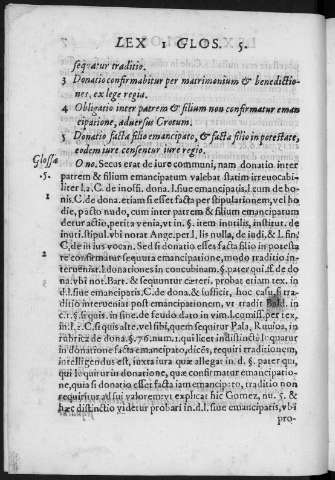 LEX 1 GLOS. 5.
sequatur traditio.
3 Donatio confirmabitur per matrimonium & benedictio-
nes, ex lege regia.
4 Obligatio inter patrem & filium non confirmatur eman
cipatione, aduersus Crotum.
5 Donatio facta filio emancipato, & facta filio in potestate,
eodem iure censentur iure regio.
Glossa
5.
O no. Secus erat de iure communi, nam donatio inter
patrem & filium emancipatum valebat statim irreuocabi-
liter l.2. C. de inoffi. dona. l. siue emancipatis. l. cum de bo-
1
nis. C. de dona. etiam si esset facta per stipulationem, vel ho
die, pacto nudo, cum inter patrem & filium emancipatum
detur actio, petita venia, vt in. §. item inutilis, institut. de
inuti. stipul. vbi notat Ange. per l. lis nulla, de iudi. & l. fin.
C. de in ius vocan. Sed si donatio esset facta filio in potesta
2
te confirmatur sequuta emancipatione, modo traditio in-
terueniat. l. donationes in concubinam. §. pater qui. ff. de do
na. vbi not. Bart. & sequuntur cæteri. probat etiam tex. in
d. l. siue emancipatis. C. de dona. & sufficit, hoc casu, si tra-
ditio interueniat post emancipationem, vt tradit Bald. in
c.1. §. si quis. in fine. de feudo dato in vim l. commiss. per tex,
in. l.2. C. si quis alte. vel sibi, quem sequitur Pala, Ruuios, in
rubrica de dona. §. 76. num. 1. qui licet indistinctè loquatur
in donatione facta emancipato, dicēs, requiri traditionem,
intelligendus est, iuxta iura quæ allegat in d. §. pater qui,
qui loquitur in donatione, quæ confirmatur emancipatio-
ne, quia si donatio esset facta iam emancipato, traditio non
requiritur ad sui valorem: vt explicat hic Gomez, nu. 5. &
hæc distinctio videtur probari in. d. l. siue emancipatis, vbi
pro-